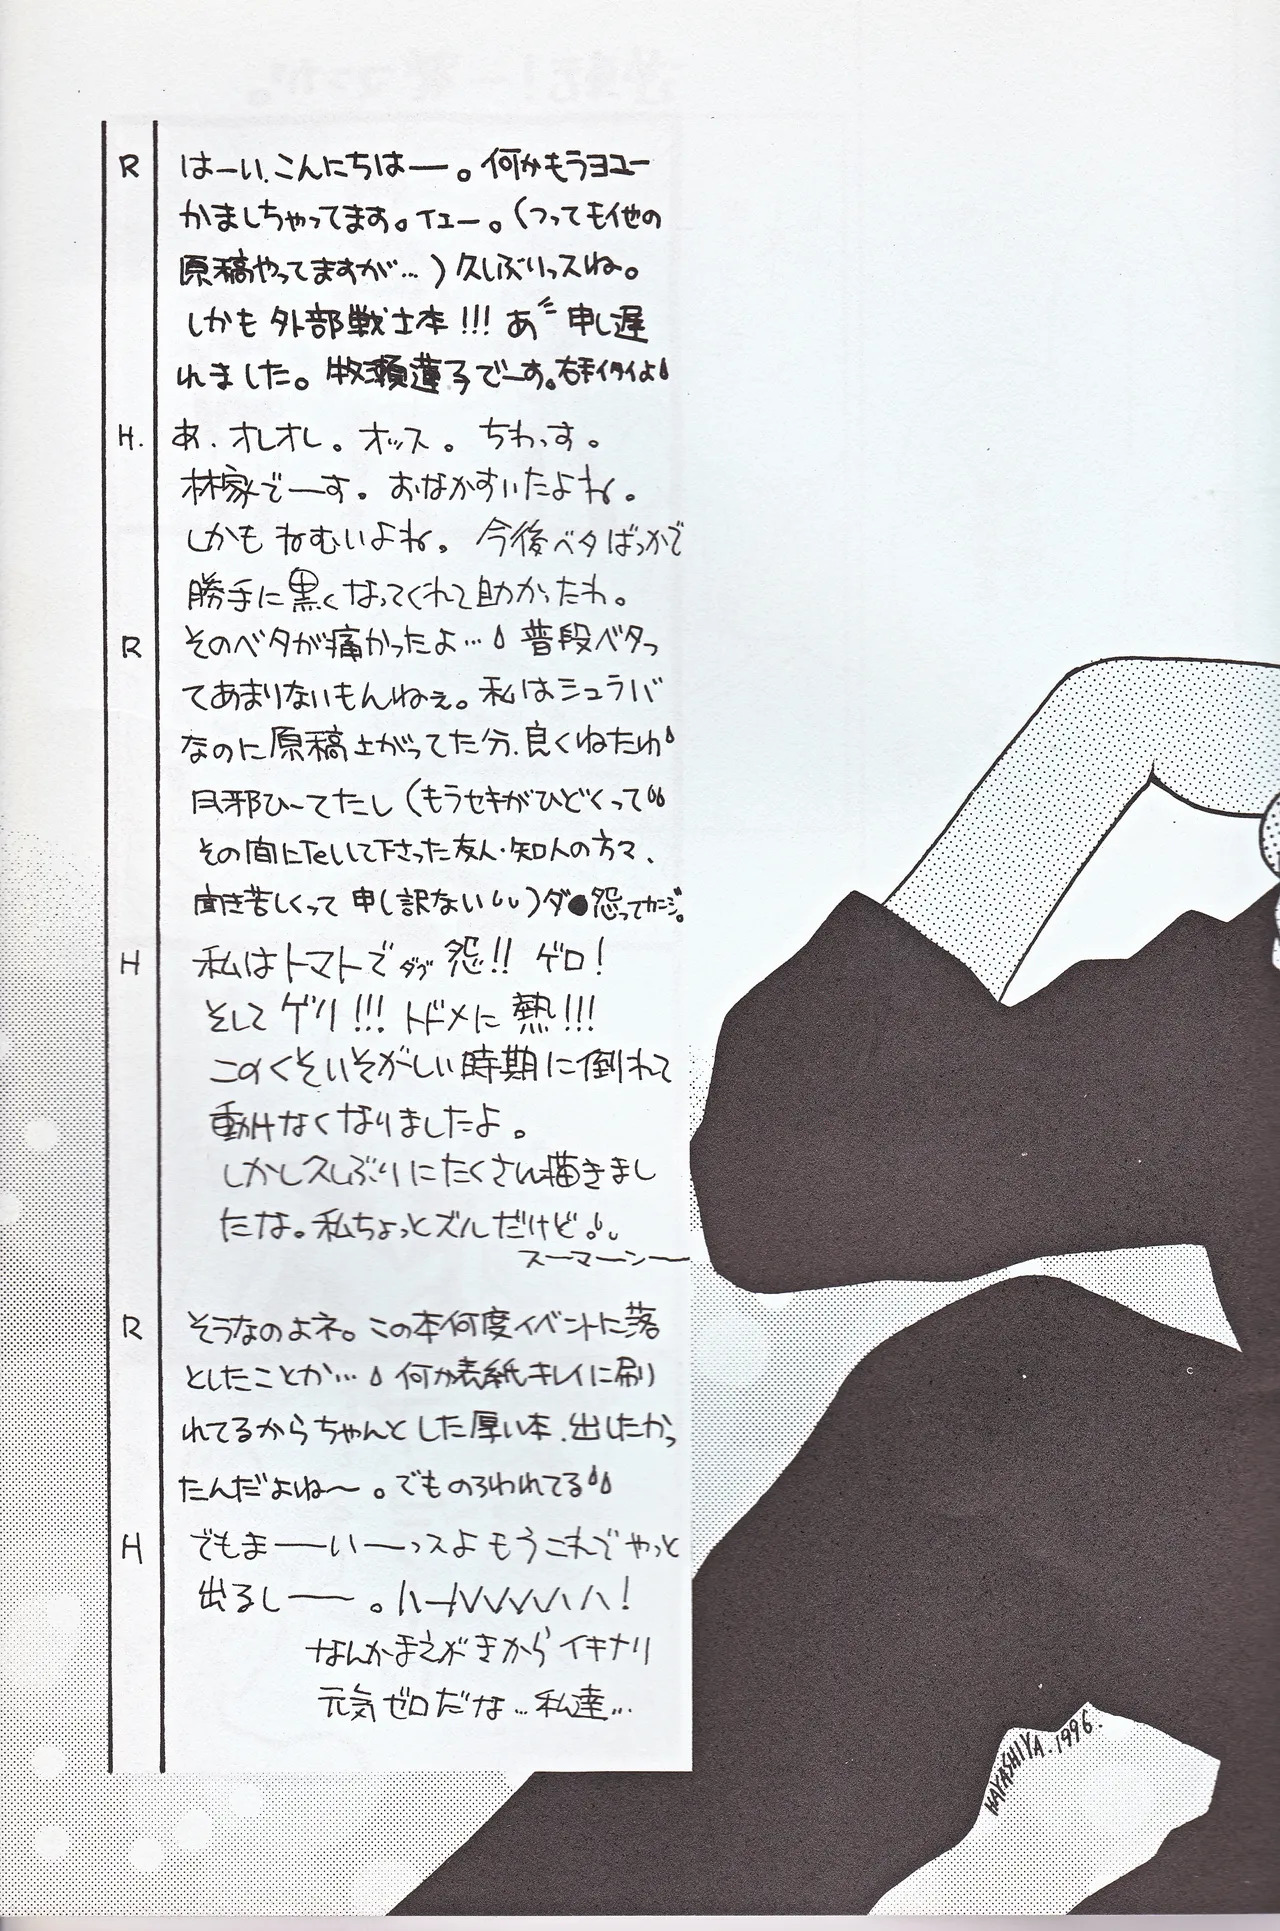 R はーい、こんにちはー。何かもうヨユー
かましちゃってます。イエー。(つっても他の
原稿やってますが…)久しぶりっスね。
しかも外部戦士本!!! あ" 申し遅
れました。牧瀬蓮子でーす。右手イタイよ
H. あ、オレオレ。オッス。ちわっす。
林家でーす。おなかすいたよね。
しかもねむいよね。今後ベタばっかで
勝手に黒くなってくれて助かったわ。
R そのベタが痛かったよ… 普段ベタっ
てあまりないもんねぇ。私はシュラバ
なのに原稿上がってた分、良くねたわ
風邪ひーてたし(もうセキがひどくって
その間にTelいて下さった友人・知人の方々、
聞き苦しくって申し訳ない)ダ●怨ってカンジ。
H 私はトマトでダブ怨!! ゲロ!
そしてゲリ!!! トドメに熱!!!
このくそいそがしい時期に倒れて
動けなくなりましたよ。
しかし久しぶりにたくさん描きまし
たな。私ちょっとズルだけど。
スーマーンー
R そうなのよネ。この本何度イベントに落
としたことか… 何か表紙キレイに刷り
れてるからちゃんとした厚い本、出したかっ
たんだよね〜。でものろわれてる
H でもまーいーっスよ もうこれでやっと
出るしー。ハーッハッハッハッハ!
なんかまえがきからイキナリ
元気ゼロだな…私達…
HAYASHIYA.1996.